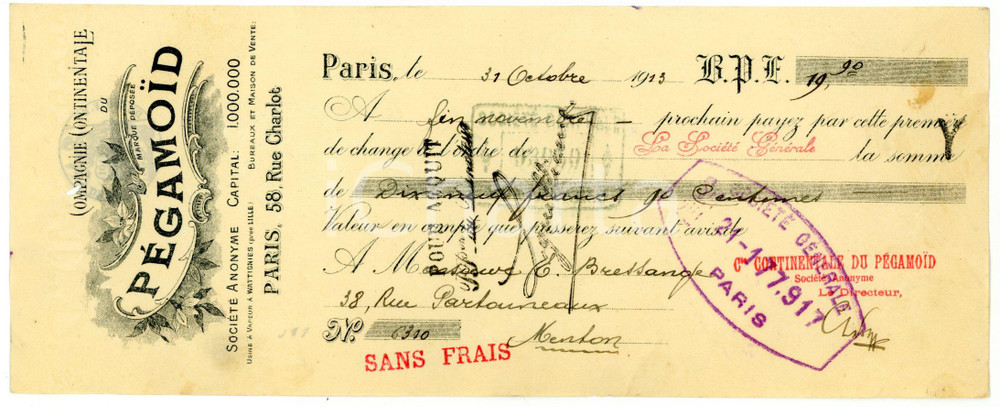 COMPAGNIE CONTINENTALE
DU
PÉGAMOÏD
MARQUE DÉPOSÉE
SOCIÉTÉ ANONYME CAPITAL: 1.000.000
USINE À VAPEUR À WATTIGNIES (PRÈS LILLE) BUREAUX ET MAISON DE VENTE:
PARIS, 58, Rue Charlot
Paris, le 31 Octobre 1913 B.P.F. 19,90
A fin novembre prochain payez par cette première
de change à l'ordre de La Société Générale la somme
de Dix neuf francs 90 Centimes
Valeur en compte que passerez suivant avis de
A Monsieur E. Bressange
38, Rue Partouneaux
Menton
No 6310
SANS FRAIS
POUR ACQUIT
SOCIÉTÉ GÉNÉRALE
PARIS
Cie CONTINENTALE DU PÉGAMOÏD
Société Anonyme
Le Directeur,